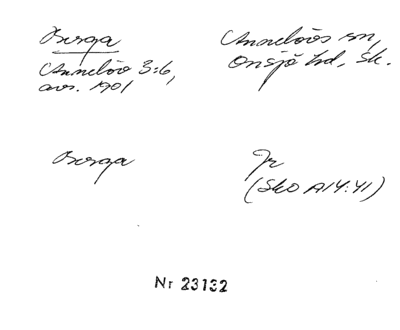 Borga
Annelövs sn,
Annelöv 3:6,
Onsjö hd, Sk.
avs. 1901
Borga
Jr
(Sko A14:41)
Nr 23132